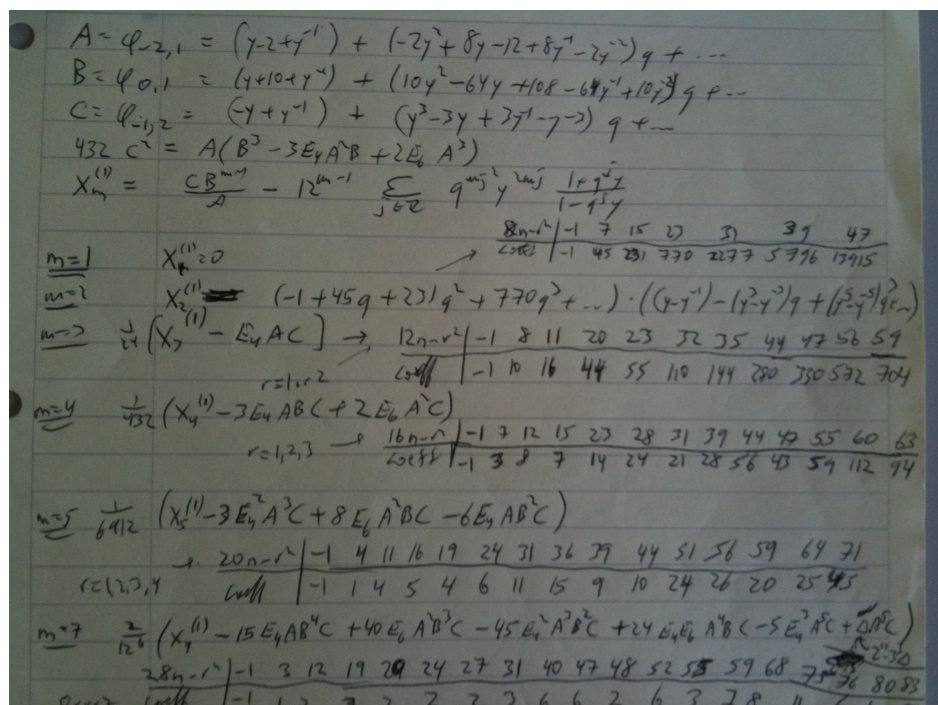 A = φ_{-2,1} = (y-2+y^{-1}) + (-2y^2+8y-12+8y^{-1}-2y^{-2}) q + ...
B = φ_{0,1} = (y+10+y^{-1}) + (10y^2-64y+108-64y^{-1}+10y^{-2}) q + ...
C = φ_{-1,2} = (-y+y^{-1}) + (y^3-3y+3y^{-1}-y^{-3}) q + ...
432 C^2 = A(B^3 - 3E_4A^2B + 2E_6 A^3)
X_m^{(1)} = CB^{m-1}/A - 12^{m-1} Σ_{j∈Z} q^{mj^2} y^{2mj} (1+q^j y)/(1-q^j y)
8n-r^2 | -1 7 15 23 31 39 47
coeff | -1 45 231 770 2277 5796 13915
m=1 X_1^{(1)}=0
m=2 X_2^{(1)} (-1+45q+231q^2+770q^3+...)·((y-y^{-1})-(y^3-y^{-3})q+(y^5-y^{-5})q^3...)
m=3 1/24 [X_3^{(1)} - E_4AC] → 12n-r^2 | -1 8 11 20 23 32 35 44 47 56 59
r=1, r=2 coeff | -1 10 16 44 55 110 144 280 330 572 704
m=4 1/432 (X_4^{(1)} - 3E_4ABC + 2E_6A^2C)
r=1,2,3 → 16n-r^2 | -1 7 12 15 23 28 31 39 44 47 55 60 63
coeff | -1 3 8 7 14 24 21 28 56 43 59 112 94
m=5 1/6912 (X_5^{(1)} - 3E_4^2A^3C + 8E_6A^2BC - 6E_4AB^2C)
→ 20n-r^2 | -1 4 11 16 19 24 31 36 39 44 51 56 59 64 71
r=1,2,3,4 coeff | -1 1 4 5 4 6 11 15 9 10 24 26 20 25 45
m=7 2/12^6 (X_7^{(1)} - 15E_4AB^4C + 40E_6A^2B^3C - 45E_4^2A^3B^2C + 24E_4E_6A^4BC - 5E_4^3A^5C + ΔA^5C)
28n-r^2 | -1 3 12 19 20 24 27 31 40 47 48 52 55 59 68 75 76 80 83